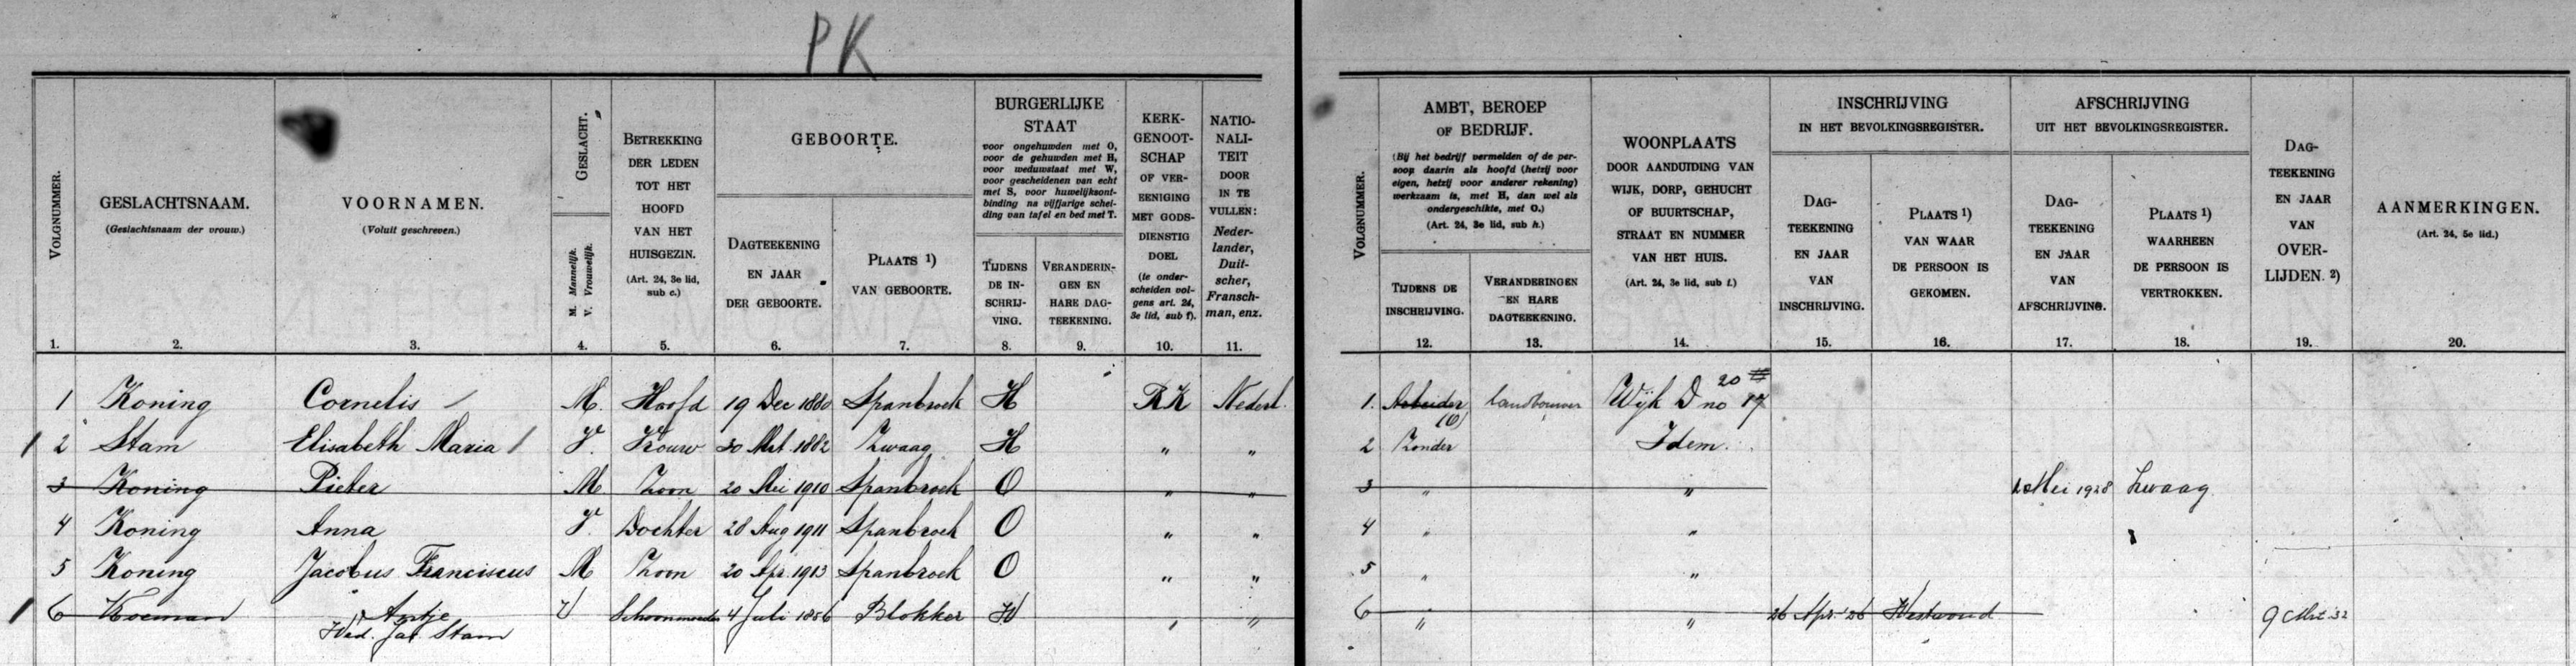 PK
VOLGNUMMER.
GESLACHTSNAAM.
(Geslachtsnaam der vrouw.)
VOORNAMEN.
(Voluit geschreven.)
GESLACHT.
M. Mannelijk.
V. Vrouwelijk.
BETREKKING
DER LEDEN
TOT HET
HOOFD
VAN HET
HUISGEZIN.
(Art. 24, 3e lid,
sub c.)
GEBOORTE.
DAGTEEKENING
EN JAAR
DER GEBOORTE.
PLAATS 1)
VAN GEBOORTE.
BURGERLIJKE
STAAT
voor ongehuwden met O,
voor de gehuwden met H,
voor weduwstaat met W,
voor gescheidenen van echt
met S, voor huwelijksont-
binding na vijfjarige schei-
ding van tafel en bed met T.
TIJDENS
DE IN-
SCHRIJ-
VING.
VERANDERIN-
GEN EN
HARE DAG-
TEEKENING.
KERK-
GENOOT-
SCHAP
OF VER-
EENIGING
MET GODS-
DIENSTIG
DOEL
(te onder-
scheiden vol-
gens art. 24,
3e lid, sub f).
NATIO-
NALI-
TEIT
DOOR
IN TE
VULLEN:
Neder-
lander,
Duit-
scher,
Fransch-
man, enz.
1. 2. 3. 4. 5. 6. 7. 8. 9. 10. 11.
1 Koning Cornelis M. Hoofd 19 Dec 1880 Spanbroek H RK Nederl.
2 Stam Elisabeth Maria V. Vrouw 30 Mrt 1882 Zwaag H " "
3 Koning Pieter M Zoon 20 Mei 1910 Spanbroek O " "
4 Koning Anna V. Dochter 28 Aug 1911 Spanbroek O " "
5 Koning Jacobus Franciscus M Zoon 20 Apr. 1913 Spanbroek O " "
6 Koeman Antje V Schoonmoeder 4 Juli 1856 Blokker W " "
Wed. Jac Stam
VOLGNUMMER.
AMBT, BEROEP
OF BEDRIJF.
(Bij het bedrijf vermelden of de per-
soon daarin als hoofd (hetzij voor
eigen, hetzij voor anderer rekening)
werkzaam is, met H, dan wel als
ondergeschikte, met O.)
(Art. 24, 3e lid, sub h.)
TIJDENS DE
INSCHRIJVING.
VERANDERINGEN
EN HARE
DAGTEEKENING.
WOONPLAATS
DOOR AANDUIDING VAN
WIJK, DORP, GEHUCHT
OF BUURTSCHAP,
STRAAT EN NUMMER
VAN HET HUIS.
(Art. 24, 3e lid, sub i.)
INSCHRIJVING
IN HET BEVOLKINGSREGISTER.
DAG-
TEEKENING
EN JAAR
VAN
INSCHRIJVING.
PLAATS 1)
VAN WAAR
DE PERSOON IS
GEKOMEN.
AFSCHRIJVING
UIT HET BEVOLKINGSREGISTER.
DAG-
TEEKENING
EN JAAR
VAN
AFSCHRIJVING.
PLAATS 1)
WAARHEEN
DE PERSOON IS
VERTROKKEN.
DAG-
TEEKENING
EN JAAR
VAN
OVER-
LIJDEN. 2)
AANMERKINGEN.
(Art. 24, 5e lid.)
12. 13. 14. 15. 16. 17. 18. 19. 20.
20
1. Arbeider landbouwer Wijk D no 17
(O)
2 Zonder Idem.
3 " " Mei 1928 Zwaag
4 " "
5 " "
6 " " 26 Apr. '26 Westwoud 9 Mrt 32